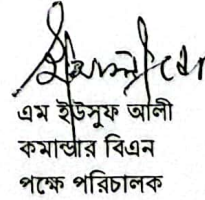 এম ইউসুফ আলী
কমান্ডার বিএন
পক্ষে পরিচালক